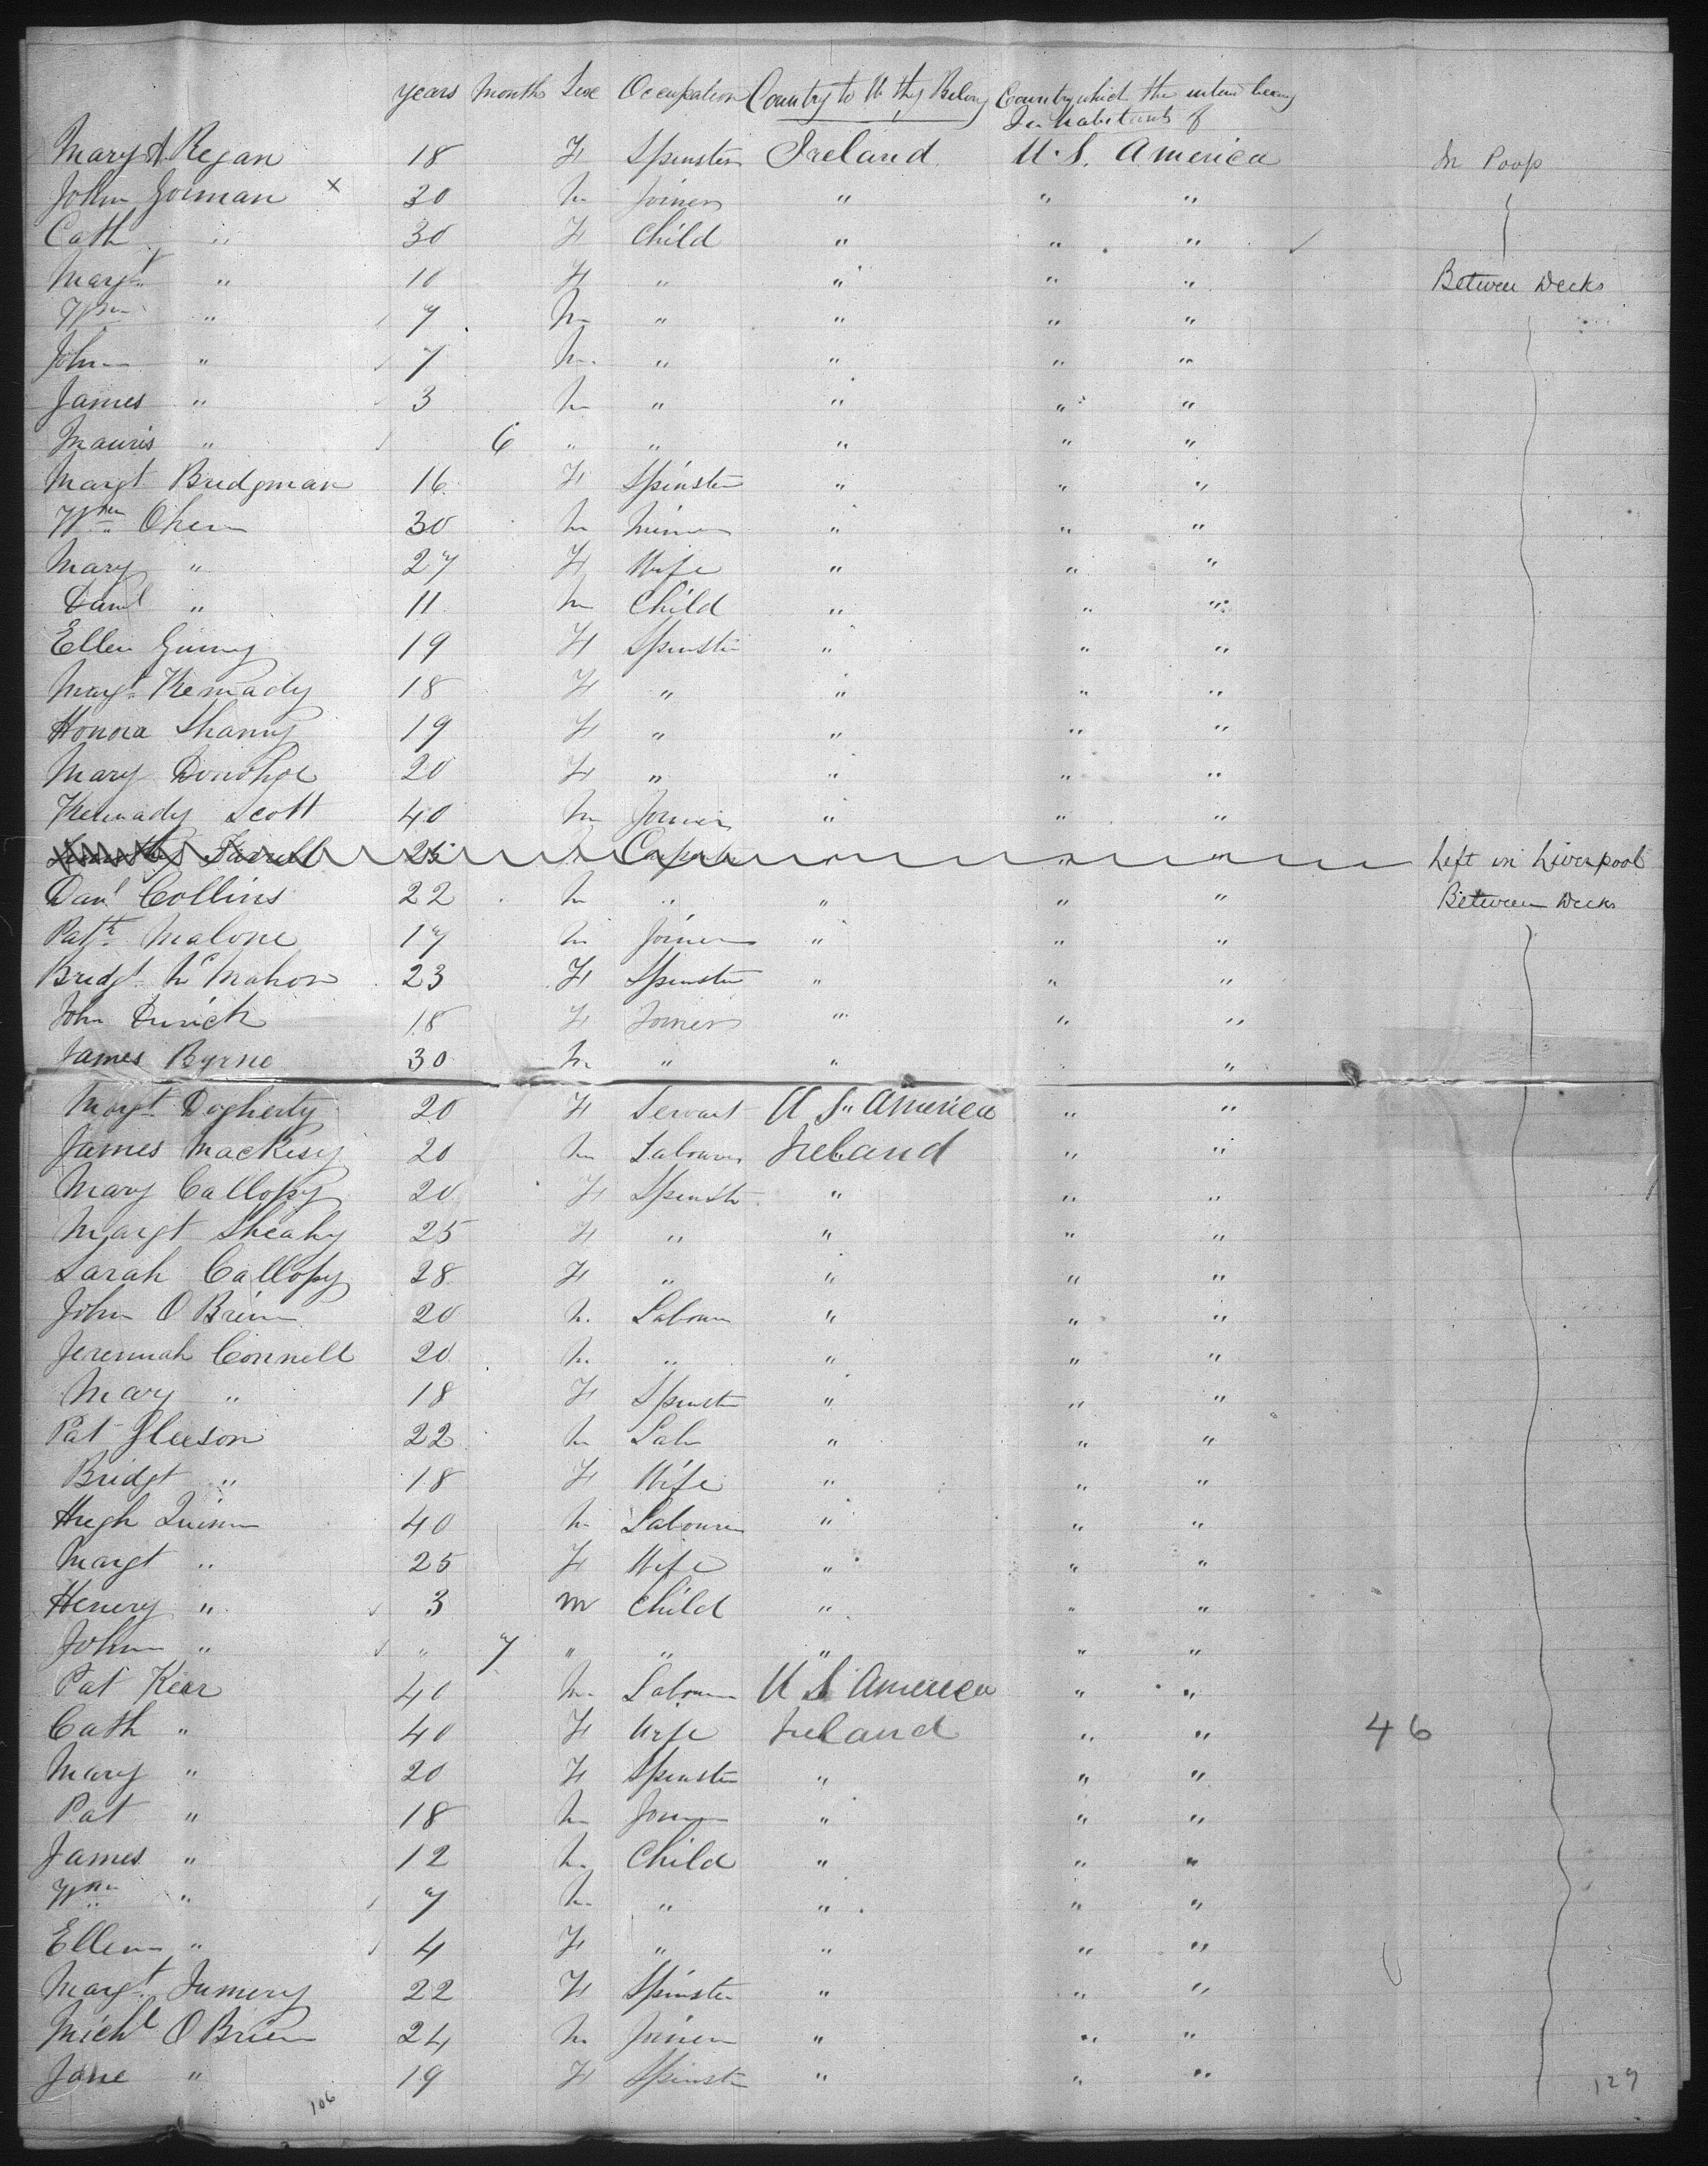 years months Sex Occupation Country to W they Belong Country which the inten being
Inhabitants of
Mary A Regan 18 F Spinster Ireland U.S. America In Poop
John Gorman x 30 M Joiner " " "
Cath " 30 F Child " " "
Margt " 10 F " " " " Between Decks
Wm " 7 M " " " "
John " 7 M " " " "
James " 3 M " " " "
Mauris " 6 " " " " "
Margt Bridgman 16 F Spinster " " "
Wm Ohern 30 M Miner " " "
Mary " 27 F Wife " " "
Danl " 11 M Child " " "
Ellen 19 F Spinster " " "
Margt Kennady 18 F " " " "
Honora Shanny 19 F " " " "
Mary Donohoe 20 F " " " "
Kennady Scott 40 M Joiner " " "
Farrell 25 Carpenter " " " Left in Liverpool
Danl Collins 22 M " " " " Between Decks
Patk Malone 17 M Joiner " " "
Bridgt McMahon 23 F Spinster " " "
John 18 F Joiner " " "
James Byrne 30 M " " "
Margt Dogherty 20 F Servant U S" America " "
James Mackesy 20 M Labourer Ireland " "
Mary Callopy 20 F Spinstr " " "
Margt Sheahy 25 F " " " "
Sarah Callopy 28 F " " " "
John O Brien 20 M. Labourer " " "
Jeremiah Connell 20 M " " " "
Mary " 18 F Spinster " " "
Pat Gleeson 22 M Labr " " "
Bridgt " 18 F Wife " " "
Hugh Quinn 40 M Labourer " " "
Margt " 25 F Wife " " "
Henery " 3 M Child " " "
John " " 7 " " " " "
Pat Kear 40 M Labourer U S America " "
Cath " 40 F Wife Ireland " " 46
Mary " 20 F Spinster " " "
Pat " 18 M Joiner " " "
James " 12 M Child " " "
Wm " 7 M " " " "
Ellen " 4 F " " " "
Margt 22 F Spinster " " "
Michl O Brien 24 M Joiner " " "
Jane " 19 F Spinster " " "
106 127